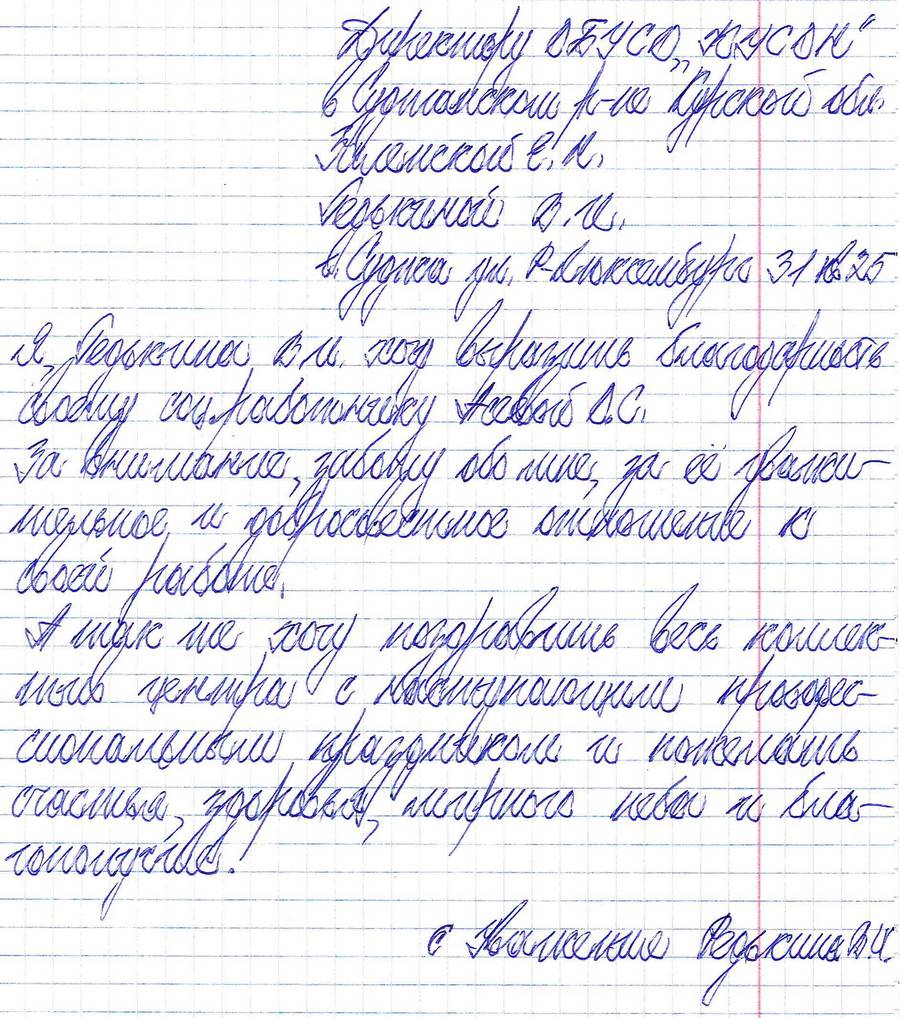 Директору ОБУСО „КЦСОН"
в Суджанском р-не Курской обл.
Е. Н.
Редькиной В. И.
г. Суджа ул. Р-Люксембург 31 кв 25
Я, Редькина В. И. хочу выразить благодарность
своему соц.работнику О.С.
За внимание, заботу обо мне, за её уважи-
тельное и добросовестное отношение к
своей работе.
А так же хочу поздравить весь коллек-
тив центра с наступающим профес-
сиональным праздником и пожелать
счастья, здоровья, мирного неба и бла-
гополучие.
с Уважение Редькина В.И.